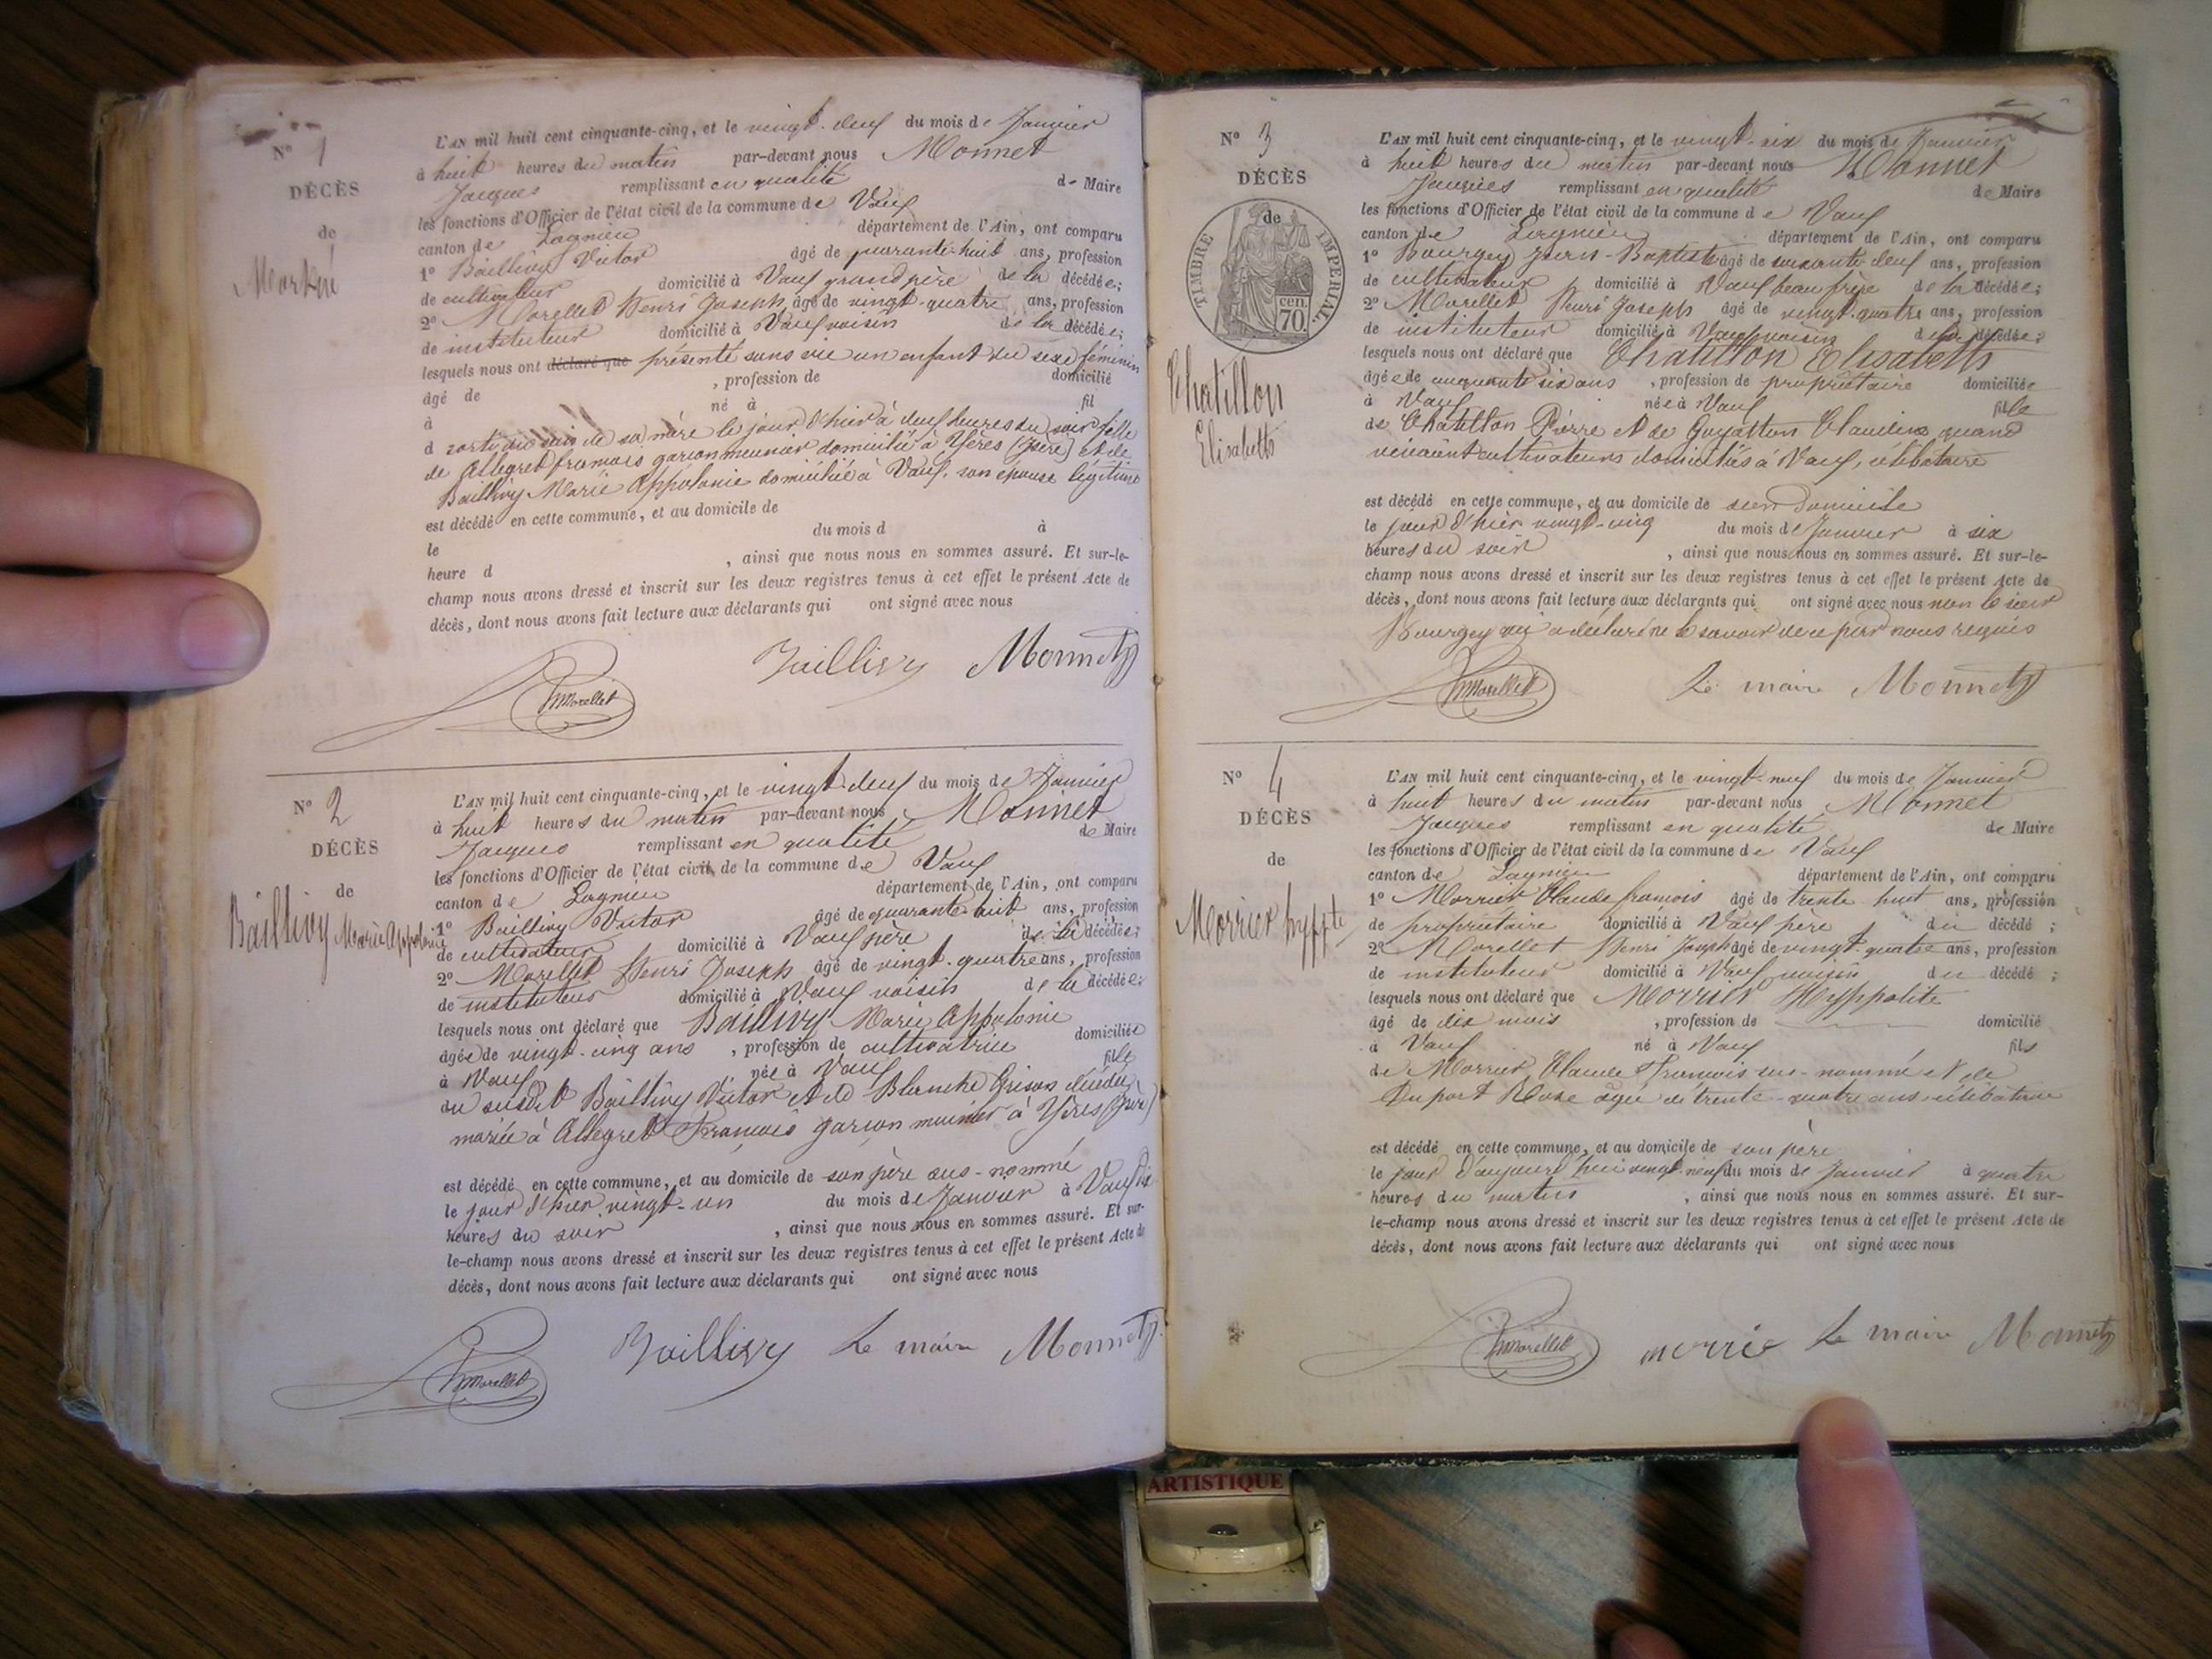 N° 1
DÉCÈS
de
Mort né
L'AN mil huit cent cinquante-cinq, et le vingt-deux du mois de Janvier
à huit heures du matin par-devant nous Monnet
Jacques remplissant en qualité de Maire
les fonctions d'Officier de l'état civil de la commune de Vaux
canton de Lagnieu département de l'Ain, ont comparu
1° Baillivy Victor âgé de quarante-huit ans, profession
de cultivateur domicilié à Vaux grand père de la décédée;
2° Morellet Henri Joseph, âgé de vingt-quatre ans, profession
de instituteur domicilié à Vaux voisin de la décédée;
lesquels nous ont déclaré que présenté sans vie un enfant du sexe féminin
âgé de , profession de domicilié
à né à fil
d sorti du sein de sa mère le jour d'hier à deux heures du soir fille
de Allegret françois garçon meunier domicilié à Yères (Isère) et de
Baillivy Marie Appolonie domiciliée à Vaux, son épouse légitime
est décédé en cette commune, et au domicile de
le du mois d à
heure d , ainsi que nous nous en sommes assuré. Et sur-le-
champ nous avons dressé et inscrit sur les deux registres tenus à cet effet le présent Acte de
décès, dont nous avons fait lecture aux déclarants qui ont signé avec nous
hMorellet Baillivy Monnet
N° 2
DÉCÈS
de
Baillivy Marie Appolonie
L'AN mil huit cent cinquante-cinq, et le vingt-deux du mois de Janvier
à huit heures du matin par-devant nous Monnet
Jacques remplissant en qualité de Maire
les fonctions d'Officier de l'état civil de la commune de Vaux
canton de Lagnieu département de l'Ain, ont comparu
1° Baillivy Victor âgé de quarante huit ans, profession
de cultivateur domicilié à Vaux père de la décédée;
2° Morellet Henri Joseph âgé de vingt-quatre ans, profession
de instituteur domicilié à Vaux voisin de la décédée;
lesquels nous ont déclaré que Baillivy Marie Appolonie
âgée de vingt-cinq ans , profession de cultivatrice domiciliée
à Vaux née à Vaux fille
du susdit Baillivy Victor et de Blanche Grison décédée
mariée à Allegret François garçon meunier à Yères (Isère)
est décédé en cette commune, et au domicile de son père sus-nommé
le jour d'hier vingt-un du mois de Janvier à Vaux dix
heures du soir , ainsi que nous nous en sommes assuré. Et sur-
le-champ nous avons dressé et inscrit sur les deux registres tenus à cet effet le présent Acte de
décès, dont nous avons fait lecture aux déclarants qui ont signé avec nous
hMorellet Baillivy Le maire Monnet
N° 3
DÉCÈS
de
TIMBRE IMPERIAL
70 cen.
Chatillon
Elisabeth
L'AN mil huit cent cinquante-cinq, et le vingt-six du mois de Janvier
à huit heures du matin par-devant nous Monnet
Jacques remplissant en qualité de Maire
les fonctions d'Officier de l'état civil de la commune de Vaux
canton de Lagnieu département de l'Ain, ont comparu
1° Bourgey Jean-Baptiste âgé de soixante-deux ans, profession
de cultivateur domicilié à Vaux beau frère de la décédée;
2° Morellet Henri Joseph âgé de vingt-quatre ans, profession
de instituteur domicilié à Vaux voisin de la décédée;
lesquels nous ont déclaré que Chatillon Elisabeth
âgée de cinquante six ans , profession de propriétaire domiciliée
à Vaux née à Vaux fille
de Chatillon Pierre et de Claudine quand
vivaient cultivateurs domiciliés à Vaux, célibataire
est décédé en cette commune, et au domicile de son domicile
le jour d'hier vingt-cinq du mois de Janvier à six
heures du soir , ainsi que nous nous en sommes assuré. Et sur-le-
champ nous avons dressé et inscrit sur les deux registres tenus à cet effet le présent Acte de
décès, dont nous avons fait lecture aux déclarants qui ont signé avec nous non le sieur
Bourgey qui a déclaré ne le savoir de ce par nous requis
hMorellet Le maire Monnet
N° 4
DÉCÈS
de
Morrier hyppte
L'AN mil huit cent cinquante-cinq, et le vingt-neuf du mois de Janvier
à huit heures du matin par-devant nous Monnet
Jacques remplissant en qualité de Maire
les fonctions d'Officier de l'état civil de la commune de Vaux
canton de Lagnieu département de l'Ain, ont comparu
1° Morrier Claude françois âgé de trente-huit ans, profession
de propriétaire domicilié à Vaux père du décédé ;
2° Morellet Henri Joseph âgé de vingt-quatre ans, profession
de instituteur domicilié à Vaux voisin du décédé ;
lesquels nous ont déclaré que Morrier Hyppolite
âgé de dix mois , profession de domicilié
à Vaux né à Vaux fils
de Morrier Claude François sus-nommé et de
Duport Rose âgée de trente-quatre ans, célibataire
est décédé en cette commune, et au domicile de son père
le jour d'aujourd'hui vingt-neuf du mois de Janvier à quatre
heures du matin , ainsi que nous nous en sommes assuré. Et sur-
le-champ nous avons dressé et inscrit sur les deux registres tenus à cet effet le présent Acte de
décès, dont nous avons fait lecture aux déclarants qui ont signé avec nous
hMorellet morrie Le maire Monnet
ARTISTIQUE